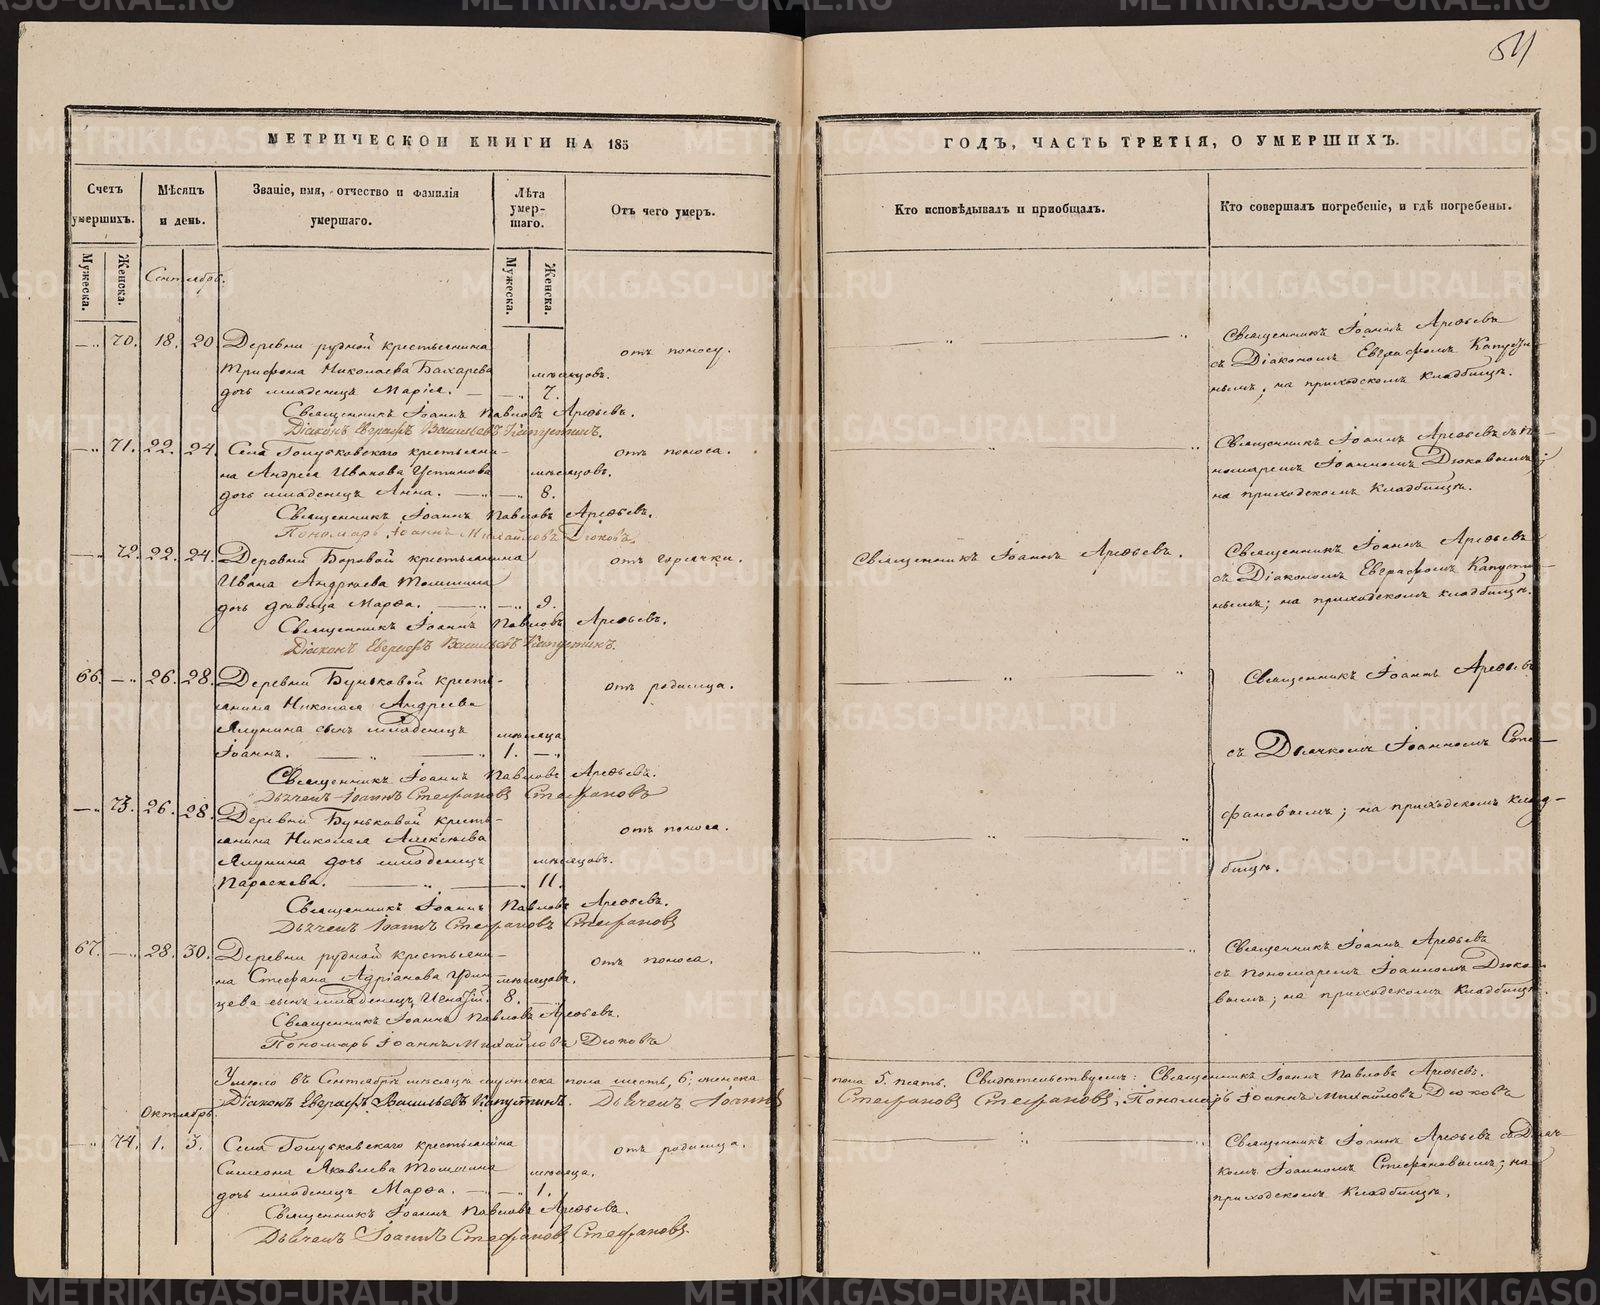 54
МЕТРИЧЕСКОИ КНИГИ НА 185
ГОДЪ, ЧАСТЬ ТРЕТІЯ, О УМЕРШИХЪ.
Счетъ умершихъ.
Мѣсяцъ и день.
Званіе, имя, отчество и фамилія умершаго.
Лѣта умер-шаго.
Отъ чего умеръ.
Кто исповѣдывалъ и приобщалъ.
Кто совершалъ погребеніе, и гдѣ погребены.
Мужеска.
Женска.
Мужеска.
Женска.
Сентябрь.
70. 18. 20 Деревни рудной крестьянина
Трифона Николаева Бахарева мѣсяцовъ.
дочь младенецъ Марія. 7.
отъ поносу.
Священникъ Іоаннъ Арефьевъ
съ Діакономъ Евграфомъ Капусти-
нымъ; на приходскомъ кладбищѣ.
Священникъ Іоаннъ Павловъ Арефьевъ.
Діаконъ Евграфъ Васильевъ Капустинъ.
71. 22. 24. Села крестьяни-
на Андрея Иванова Устинова мѣсяцовъ.
дочь младенецъ Анна. 8.
отъ поноса.
Священникъ Іоаннъ Арефьевъ съ По-
номаремъ Іоанномъ Дюковымъ;
на приходскомъ кладбищѣ.
Священникъ Іоаннъ Павловъ Арефьевъ.
Пономарь Іоаннъ Михайловъ Дюковъ.
72. 22. 24. Деревни Боровой крестьянина
Ивана Андреева Томшина
дочь дѣвица Марѳа. 9.
отъ горячки.
Священникъ Іоаннъ Арефьевъ.
Священникъ Іоаннъ Арефьевъ
съ Діакономъ Евграфомъ Капусти-
нымъ; на приходскомъ кладбищѣ.
Священникъ Іоаннъ Павловъ Арефьевъ.
Діаконъ Евграфъ Васильевъ Капустинъ.
66. 26. 28. Деревни Буньковой кресть-
янина Николая Андреева
Ялунина сынъ младенецъ мѣсяца
Іоаннъ. 1.
отъ родимца.
Священникъ Іоаннъ Арефьевъ
съ Дьячкомъ Іоанномъ Сте-
фановымъ; на приходскомъ клад-
бищѣ.
Священникъ Іоаннъ Павловъ Арефьевъ.
Дьячекъ Іоаннъ Стефановъ Стефановъ
73. 26. 28. Деревни Буньковой кресть-
янина Николая Алексѣева
Ялунина дочь младенецъ мѣсяцовъ.
Параскева. 11.
отъ поноса.
Священникъ Іоаннъ Павловъ Арефьевъ.
Дьячекъ Іоаннъ Стефановъ Стефановъ
67. 28. 30. Деревни рудной крестьяни-
на Стефана Адріанова Удин- мѣсяцовъ.
цева сынъ младенецъ Игнатій. 8.
отъ поноса.
Священникъ Іоаннъ Арефьевъ
съ пономаремъ Іоанномъ Дюко-
вымъ; на приходскомъ кладбищѣ.
Священникъ Іоаннъ Павловъ Арефьевъ.
Пономарь Іоаннъ Михайловъ Дюковъ
Умерло въ Сентябрѣ мѣсяцѣ мужеска пола шесть, 6; женска пола 5. пять. Свидѣтельствуемъ: Священникъ Іоаннъ Павловъ Арефьевъ.
Діаконъ Евграфъ Васильевъ Капустинъ. Дьячекъ Іоаннъ Стефановъ Стефановъ, Пономарь Іоаннъ Михайловъ Дюковъ
Октябрь
74. 1. 3. Села крестьянина
Симеона Яковлева Томшина мѣсяца.
дочь младенецъ Марѳа. 1.
отъ родимца.
Священникъ Іоаннъ Арефьевъ съ Дьяч-
комъ Іоанномъ Стефановымъ; на
приходскомъ кладбищѣ.
Священникъ Іоаннъ Павловъ Арефьевъ.
Дьячекъ Іоаннъ Стефановъ Стефановъ
METRIKI.GASO-URAL.RU